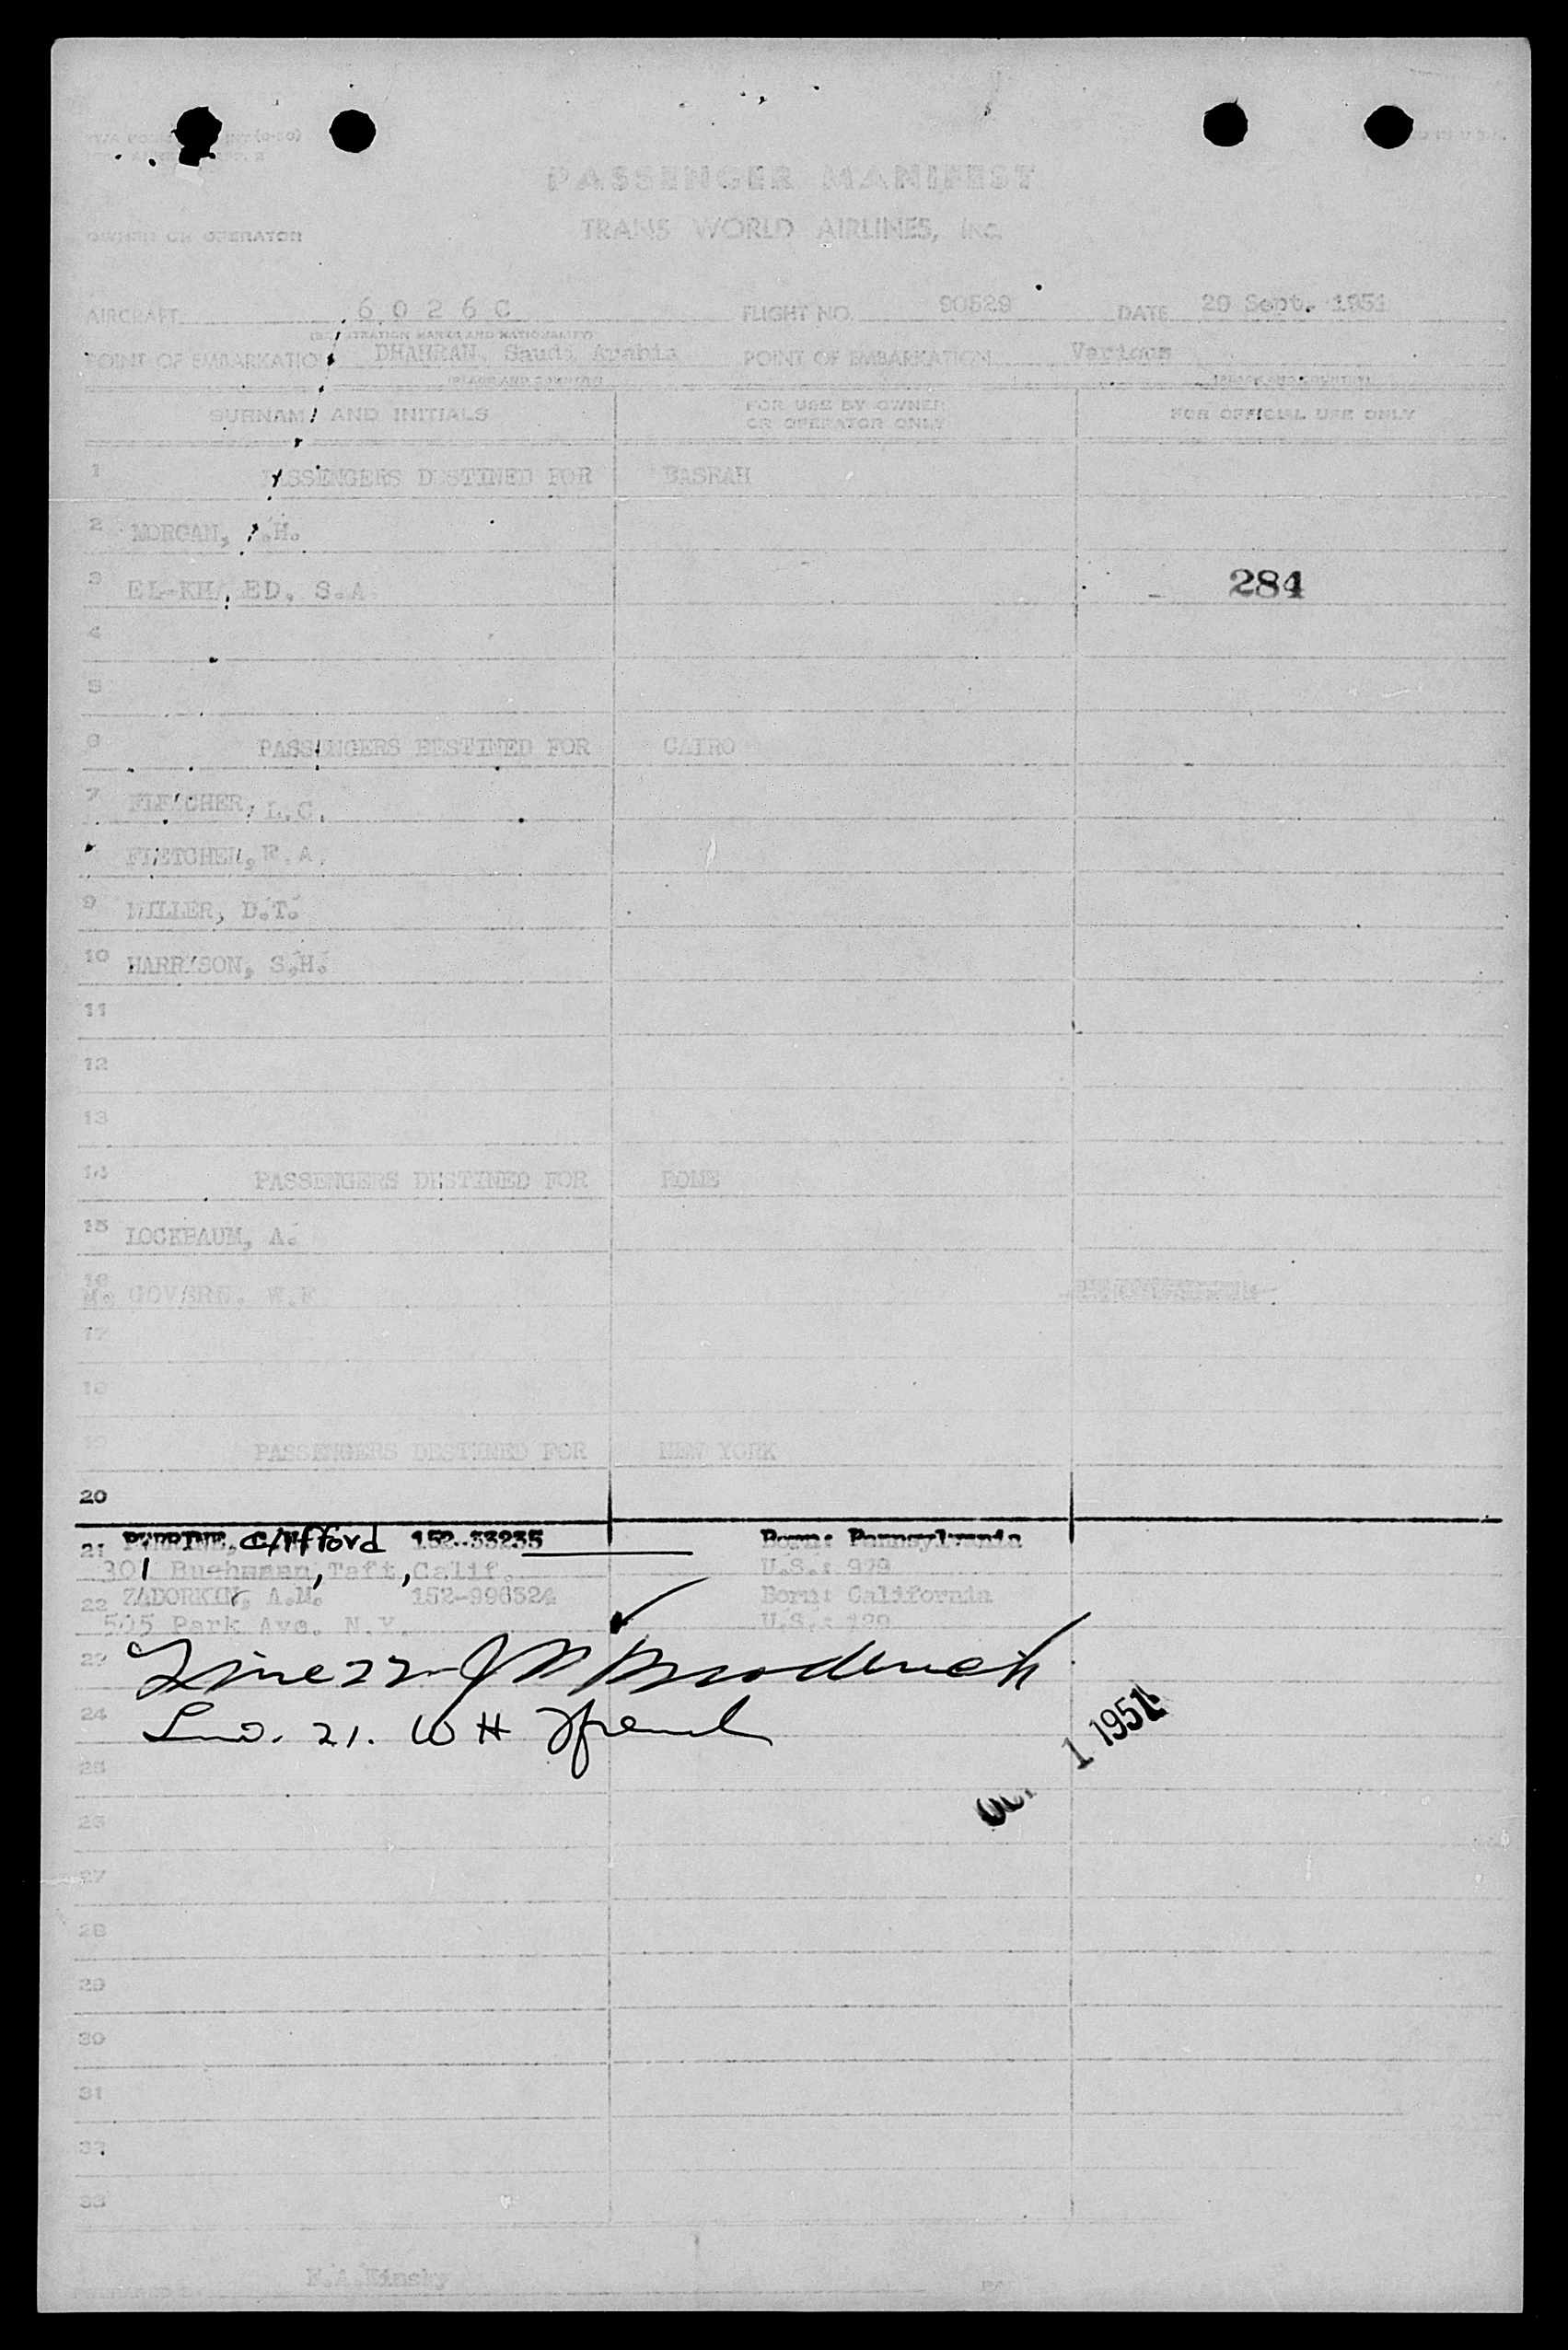 PASSENGER MANIFEST
OWNER OR OPERATOR TRANS WORLD AIRLINES, Inc.
AIRCRAFT 6 0 2 6 C FLIGHT NO. 90529 DATE 29 Sept. 1951
(REGISTRATION MARKS AND NATIONALITY)
POINT OF EMBARKATION DHAHRAN, Saudi Arabia POINT OF EMBARKATION Various
(PLACE AND COUNTRY) (PLACE AND COUNTRY)
SURNAME AND INITIALS FOR USE BY OWNER OR OPERATOR ONLY FOR OFFICIAL USE ONLY
1 PASSENGERS DESTINED FOR BASRAH
2 MORGAN, .H.
3 EL-KH ED. S.A. 284
4
5
6 PASSENGERS DESTINED FOR CAIRO
7 FLETCHER, L.C.
FLETCHER, A.
9 MILLER, D.T.
10 HARRISON, S.H.
11
12
13
14 PASSENGERS DESTINED FOR ROME
15 LOCKBAUM, A.
16 GOVERN. W.
17
18
19 PASSENGERS DESTINED FOR NEW YORK
20
21 Clifford 152-33235 Born: Pennsylvania
301 Taft, Calif. U.S.: 929
22 ZADORKIN, A.M. 152-996524 Born: California
505 Park Ave. N.Y. U.S.: 129
23 Line 22 Broderick
24 21. WH
1 1951
25
26
27
28
29
30
31
32
33